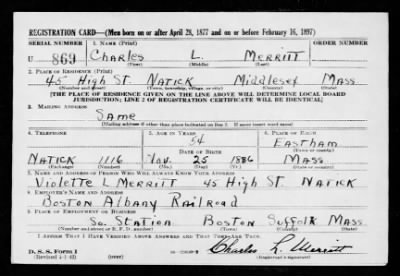 REGISTRATION CARD—(Men born on or after April 28, 1877 and on or before February 16, 1897)
SERIAL NUMBER 1. NAME (Print)
U 869 Charles L. Merritt
(First) (Middle) (Last)
2. PLACE OF RESIDENCE (Print)
45 High St. Natick Middlesex Mass
(Number and street) (Town, township, village, or city) (County) (State)
[THE PLACE OF RESIDENCE GIVEN ON THE LINE ABOVE WILL DETERMINE LOCAL BOARD
JURISDICTION; LINE 2 OF REGISTRATION CERTIFICATE WILL BE IDENTICAL]
3. MAILING ADDRESS
Same
[Mailing address if other than place indicated on line 2. If same insert word same]
4. TELEPHONE 5. AGE IN YEARS 6. PLACE OF BIRTH
54 Eastham
DATE OF BIRTH
Natick 1116 Nov. 25 1886 Mass
7. NAME AND ADDRESS OF PERSON WHO WILL ALWAYS KNOW YOUR ADDRESS
Violette L Merritt 45 High St. Natick
8. EMPLOYER'S NAME AND ADDRESS
Boston Albany Railroad
9. PLACE OF EMPLOYMENT OR BUSINESS
So. Station Boston Suffolk Mass
(Number and street or R. F. D. number) (Town) (County) (State)
I AFFIRM THAT I HAVE VERIFIED ABOVE ANSWERS AND THAT THEY ARE TRUE.
D. S. S. Form 1 Charles L. Merritt
(Registrant's signature)